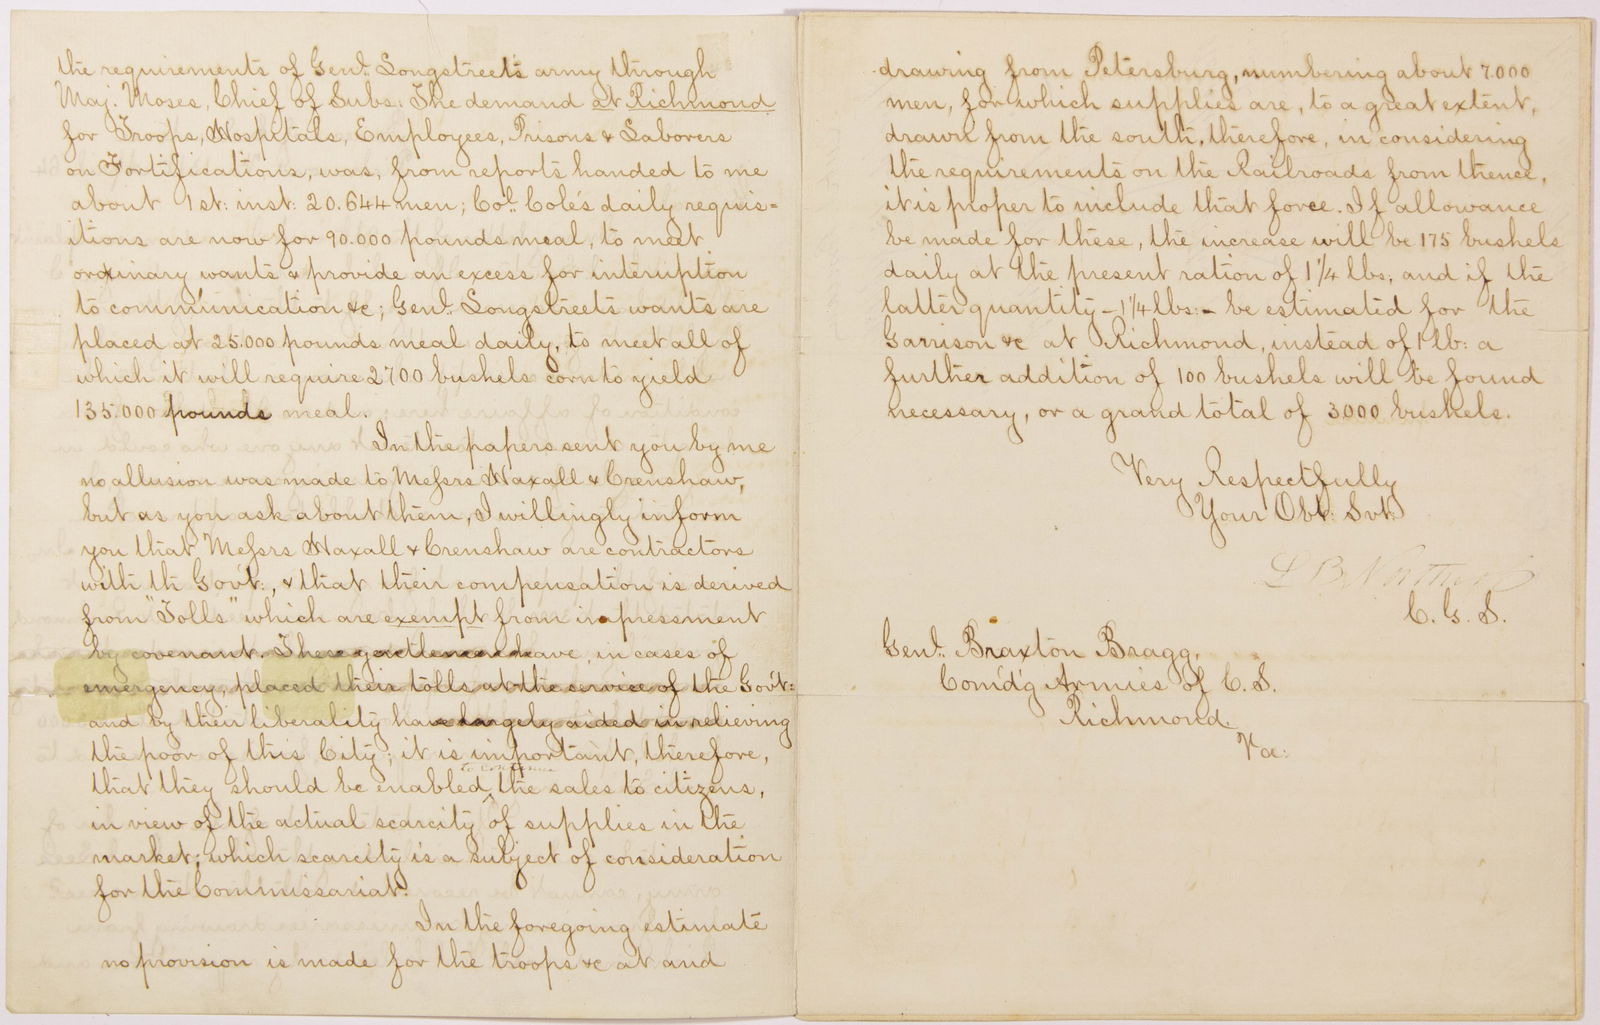 the requirements of Genl. Longstreet's army through
Maj. Moses, Chief of Subs: The demand at Richmond
for Troops, Hospitals, Employees, Prisons & Laborers
on Fortifications, was, from reports handed to me
about 1st: inst: 20.644 men; Col. Cole's daily requis=
itions are now for 90.000 pounds meal, to meet
ordinary wants & provide an excess for interuption
to communication &c; Genl. Longstreets wants are
placed at 25.000 pounds meal daily, to meet all of
which it will require 2700 bushels corn to yield
135.000 pounds meal.
In the papers sent you by me
no allusion was made to Messrs Haxall & Crenshaw,
but as you ask about them, I willingly inform
you that Messrs Haxall & Crenshaw are contractors
with th Gov't:, & that their compensation is derived
from "Tolls" which are exempt from impressment
by covenant. These gentlemen have, in cases of
emergency, placed their tolls at the service of the Gov't:
and by their liberality have largely aided in relieving
the poor of this City; it is important, therefore,
to continue
that they should be enabled, the sales to citizens,
in view of the actual scarcity of supplies in the
market; which scarcity is a subject of consideration
for the Commissariat.
In the foregoing estimate
no provision is made for the troops &c at and
drawing from Petersburg, numbering about 7.000
men, for which supplies are, to a great extent,
drawn from the south, therefore, in considering
the requirements on the Railroads from thence,
it is proper to include that force. If allowance
be made for these, the increase will be 175 bushels
daily at the present ration of 1 1/4 lbs; and if the
latter quantity - 1 1/4 lbs: - be estimated for the
Garrison &c at Richmond, instead of 1 lb: a
further addition of 100 bushels will be found
necessary, or a grand total of 3.000 bushels.
Very Respectfully
Your Obt: Svt:
L B Northrop
C. G. S.
Genl. Braxton Bragg,
Com'd'g Armies of C. S.
Richmond.
Va: